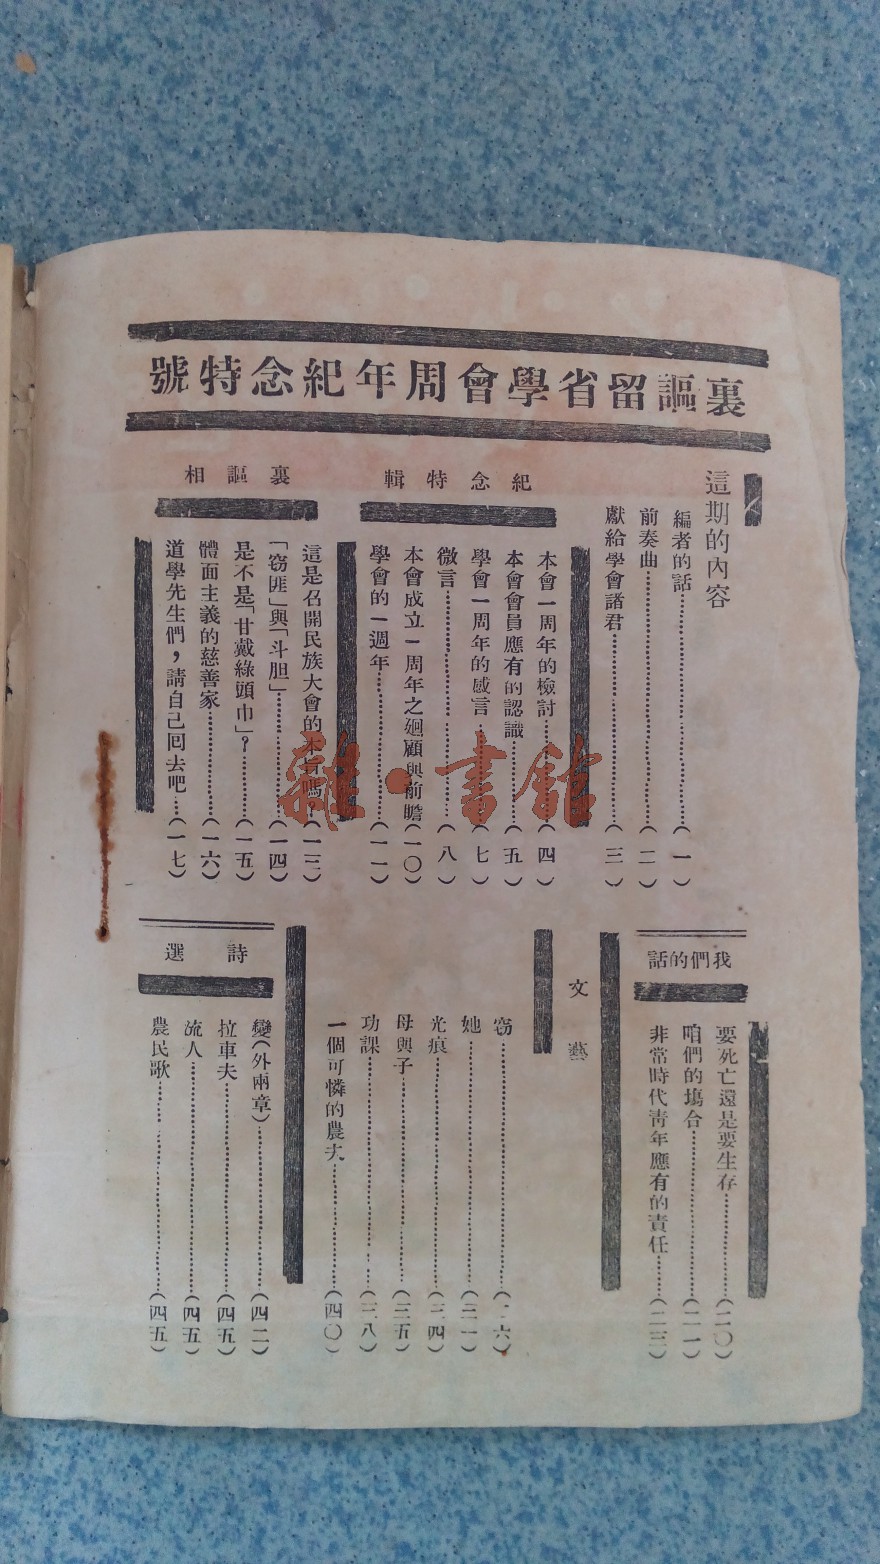 裏謳留省學會周年紀念特號
這期的內容
編者的話……(一)
前奏曲……(二)
獻給學會諸君……(三)
紀念特輯
本會一周年的檢討……(四)
本會會員應有的認識……(五)
學會一周年的感言……(七)
微言……(八)
本會成立一周年之廻顧與前瞻(一〇)
學會的一週年……(一一)
裏謳相
這是召開民族大會的本旨嗎?(一三)
「窃匪」與「斗胆」……(一四)
是不是「甘戴綠頭巾」?……(一五)
體面主義的慈善家……(一六)
道學先生們,請自己回去吧…(一七)
我們的話
要死亡還是要生存……(二〇)
咱們的塲合……(二一)
非常時代青年應有的責任……(二三)
文藝
窃……(二六)
她……(三一)
光痕……(三四)
母與子……(三五)
功課……(三八)
一個可憐的農夫……(四〇)
詩選
變(外兩章)……(四二)
拉車夫……(四五)
流人……(四五)
農民歌……(四五)
雜·書館